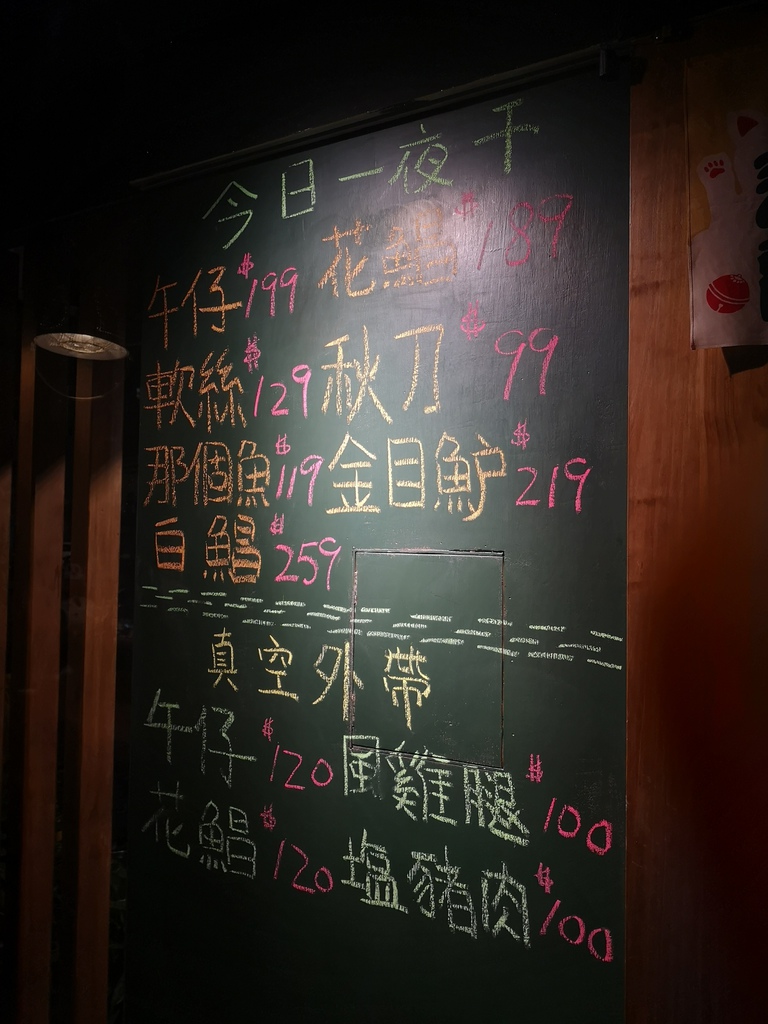 今日一夜干
午仔$199 花鯧$189
軟絲$129 秋刀$99
那個魚$119 金目鲈$219
白鯧$259
真空外帶
午仔$120 風雞腿$100
花鯧$120 塩豬肉$100